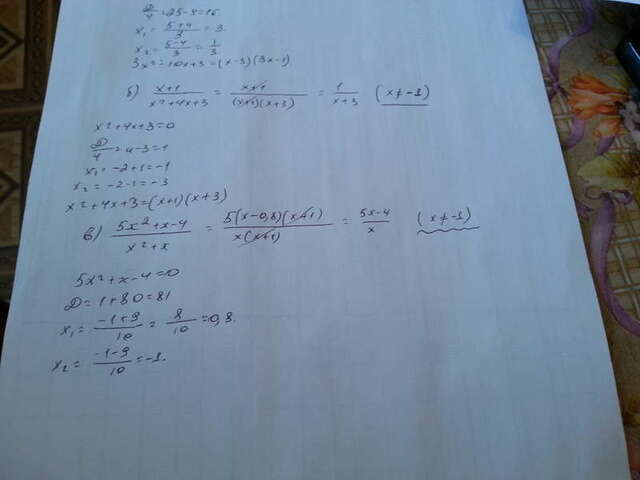 D/4 = 25-9=16
x₁ = (5+4)/3 = 3.
x₂ = (5-4)/3 = 1/3
3x²-10x+3=(x-3)(3x-1)
б) (x+1)/(x²+4x+3) = (x+1)/((x+1)(x+3)) = 1/(x+3) (x≠-1)
x²+4x+3=0
D/4 = 4-3=1
x₁ = -2+1=-1
x₂ = -2-1=-3
x²+4x+3=(x+1)(x+3)
в) (5x²+x-4)/(x²+x) = (5(x-0,8)(x+1))/(x(x+1)) = (5x-4)/x (x≠-1)
5x²+x-4=0
D=1+80=81
x₁ = (-1+9)/10 = 8/10 =0,8.
x₂ = (-1-9)/10 =-1.